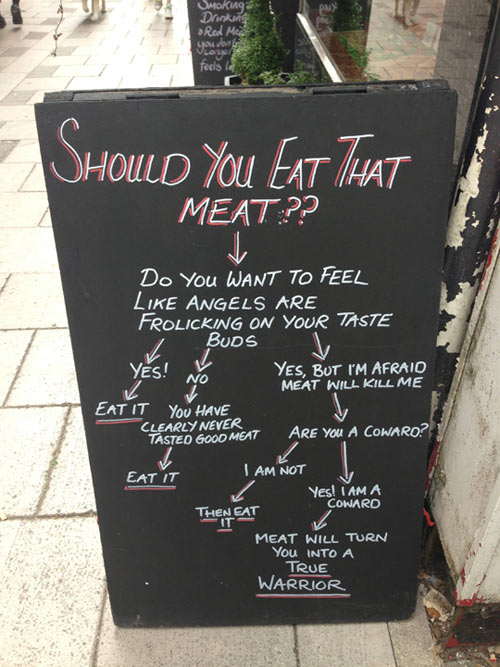 Smoking
Drinking
Red
you don't
feels
SHOULD YOU EAT THAT
MEAT??
DO YOU WANT TO FEEL
LIKE ANGELS ARE
FROLICKING ON YOUR TASTE
BUDS
YES!
NO
YES, BUT I'M AFRAID
MEAT WILL KILL ME
EAT IT
YOU HAVE
CLEARLY NEVER
TASTED GOOD MEAT
ARE YOU A COWARD?
EAT IT
I AM NOT
YES! I AM A
COWARD
THEN EAT
IT
MEAT WILL TURN
YOU INTO A
TRUE
WARRIOR